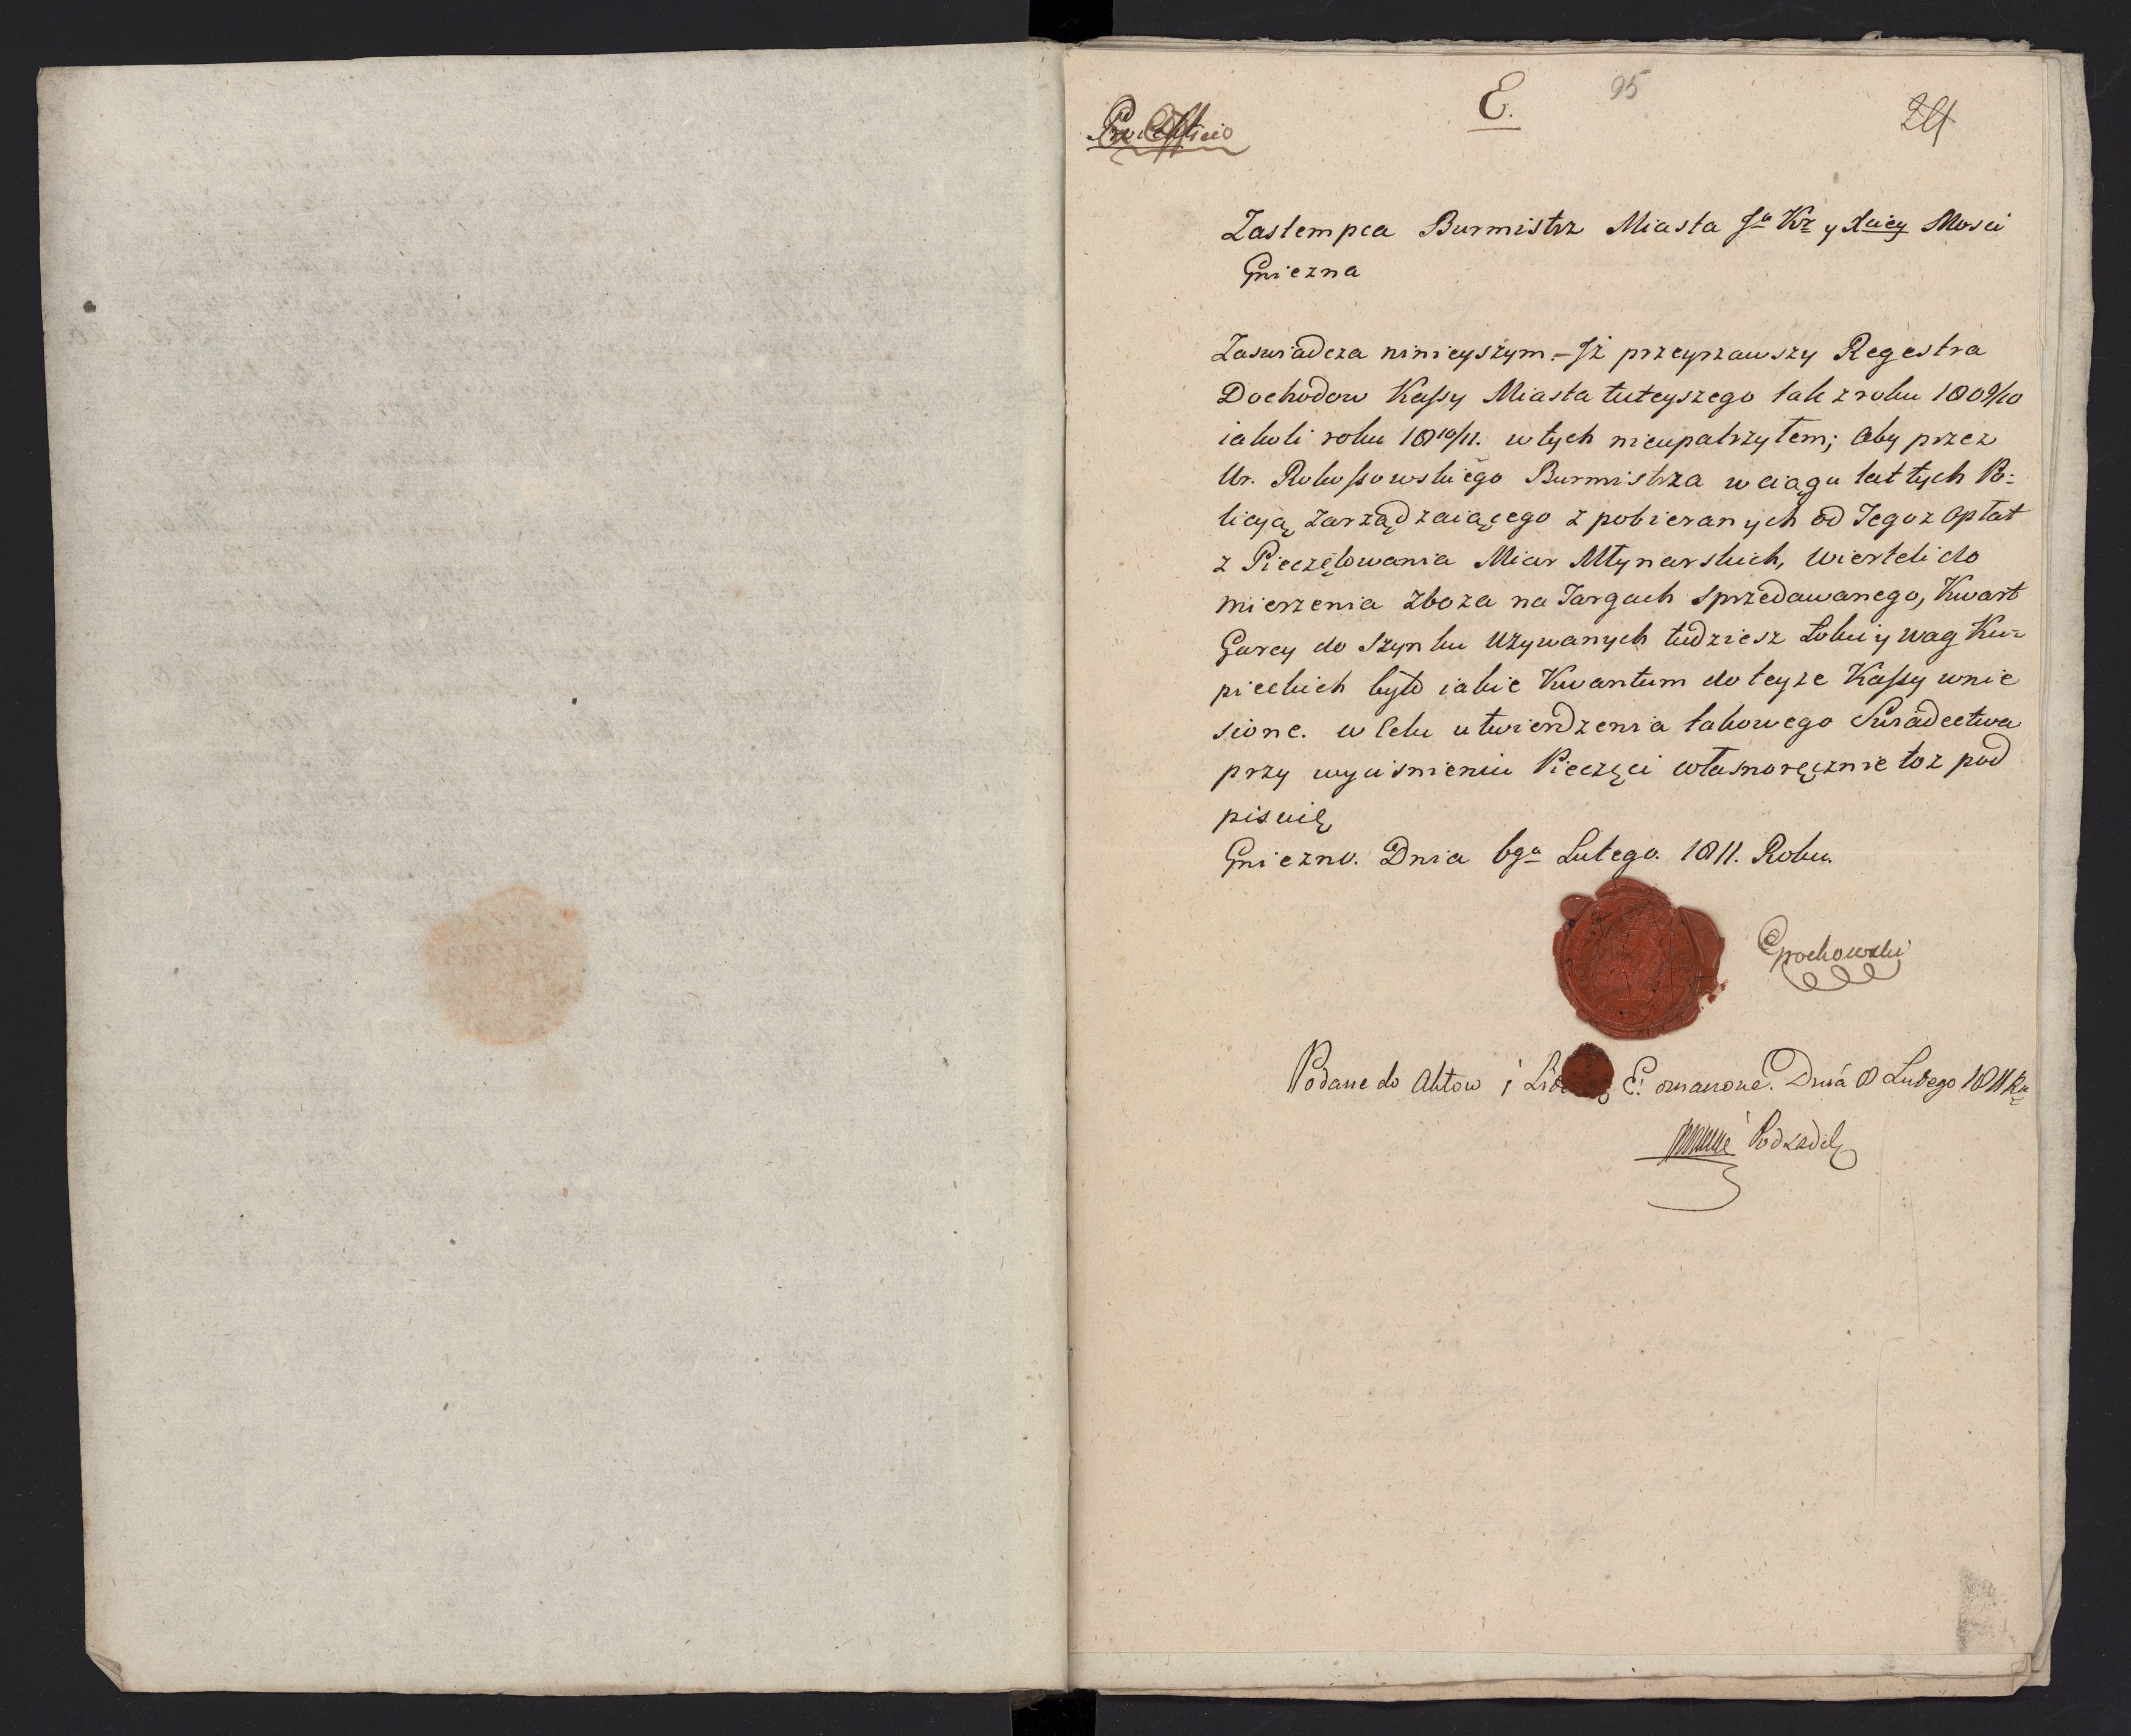 Pro Officio
E.
95
24
Zastempca Burmistrz Miasta Jo Kr y Xcicy Mosci
Gniezna
Zaswiadcza ninieyszym. - Iż przeyrzawszy Regestra
Dochodow Kassy Miasta tuteyszego tak z roku 1809/10
iakoli roku 1810/11. w tych nieupatrzyłem; Aby przez
Ur. Rokossowskiego Burmistrza w ciągu lat tych Po-
licyą Zarządzaiącego z pobieranych od Tegoz Opłat
z Pieczętowania Miar Młynarskich, Wierteli do
mierzenia Zboza na Targach Sprzedawanego, Kwart
Garcy do Szynku Uzywanych tudziesz Łokci y Wag Ku-
pieckich było iakie Kwantum do teyze Kassy wnie
sione. w Celu utwierdzenia takowego Swiadectwa
przy wyciśnieniu Pieczęci własnoręcznie toz pod
pisuię
Gniezno. Dnia 6go Lutego. 1811. Roku.
Grochowski
Podane do Aktow i E. oznaczone. Dnia 8 Lutego 1811 Ru
Podsędek